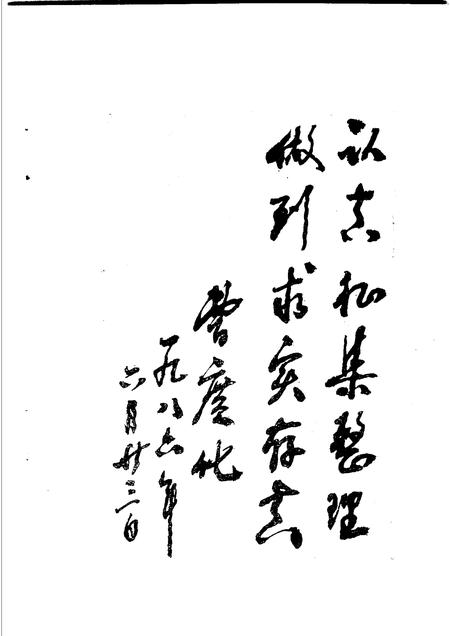 认真征集整理
做到求实存真
曾庆化
一九八六年
六月廿三日